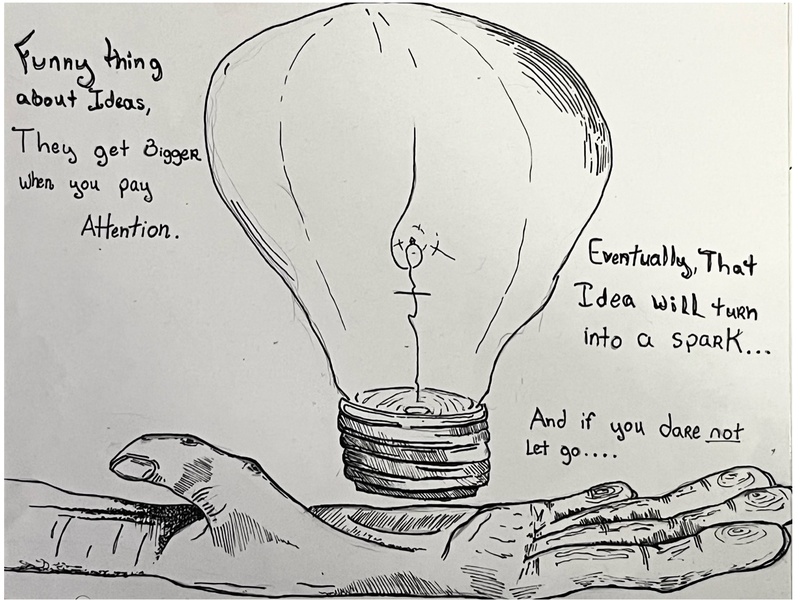 Funny thing
about Ideas,
They get Bigger
when you pay
Attention.
Eventually, That
Idea will turn
into a spark...
And if you dare not
Let go....